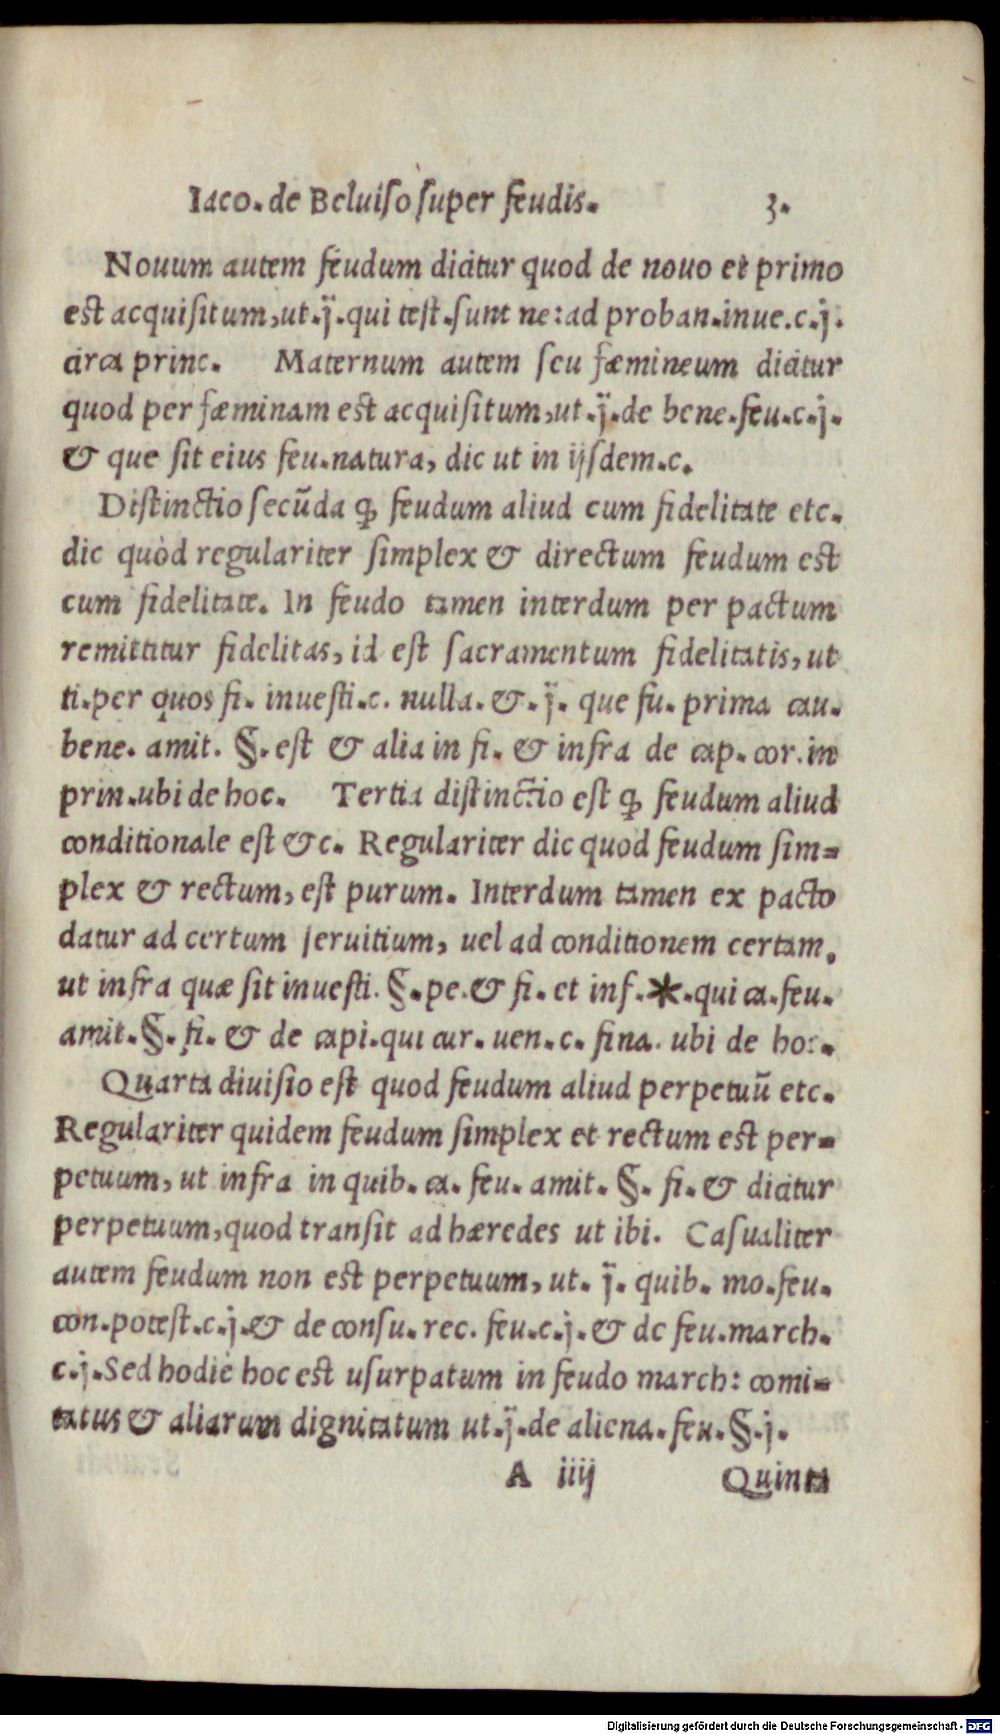 Iaco. de Beluiso super feudis. 3.
Nouum autem feudum dicitur quod de nouo et primo
est acquisitum, ut. j̈. qui test. sunt ne: ad proban. inue. c. j.
circa princ. Maternum autem seu fæmineum dicitur
quod per fæminam est acquisitum, ut. j̈. de bene. feu. c. j.
& que sit eius feu. natura, dic ut in ijsdem. c.
Distinctio secũda ꝙ feudum aliud cum fidelitate etc.
dic quòd regulariter simplex & directum feudum est
cum fidelitate. In feudo tamen interdum per pactum
remittitur fidelitas, id est sacramentum fidelitatis, ut
ti. per quos fi. inuesti. c. nulla. &. j̈. que fu. prima cau.
bene. amit. §. est & alia in fi. & infra de cap. cor. in
prin. ubi de hoc. Tertia distinctio est ꝙ feudum aliud
conditionale est &c. Regulariter dic quod feudum sim=
plex & rectum, est purum. Interdum tamen ex pacto
datur ad certum seruitium, uel ad conditionem certam.
ut infra quæ sit inuesti. §. pe. & fi. et inf. *. qui ca. feu.
amit. §. fi. & de capi. qui cur. uen. c. fina. ubi de hoc.
Quarta diuisio est quod feudum aliud perpetuũ etc.
Regulariter quidem feudum simplex et rectum est per=
petuum, ut infra in quib. ca. feu. amit. §. fi. & dicitur
perpetuum, quod transit ad hæredes ut ibi. Casualiter
autem feudum non est perpetuum, ut. j̈. quib. mo. feu.
con. potest. c. j. & de consu. rec. feu. c. j. & de feu. march.
c. j. Sed hodie hoc est usurpatum in feudo march: comi=
tatus & aliarum dignitatum ut. j̈. de aliena. feu. §. j.
A iiij Quinta
Digitalisierung gefördert durch die Deutsche Forschungsgemeinschaft - DFG